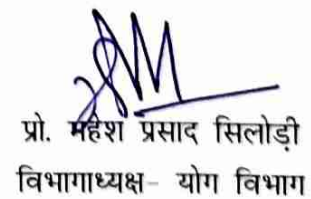 प्रो. महेश प्रसाद सिलोड़ी
विभागाध्यक्ष- योग विभाग